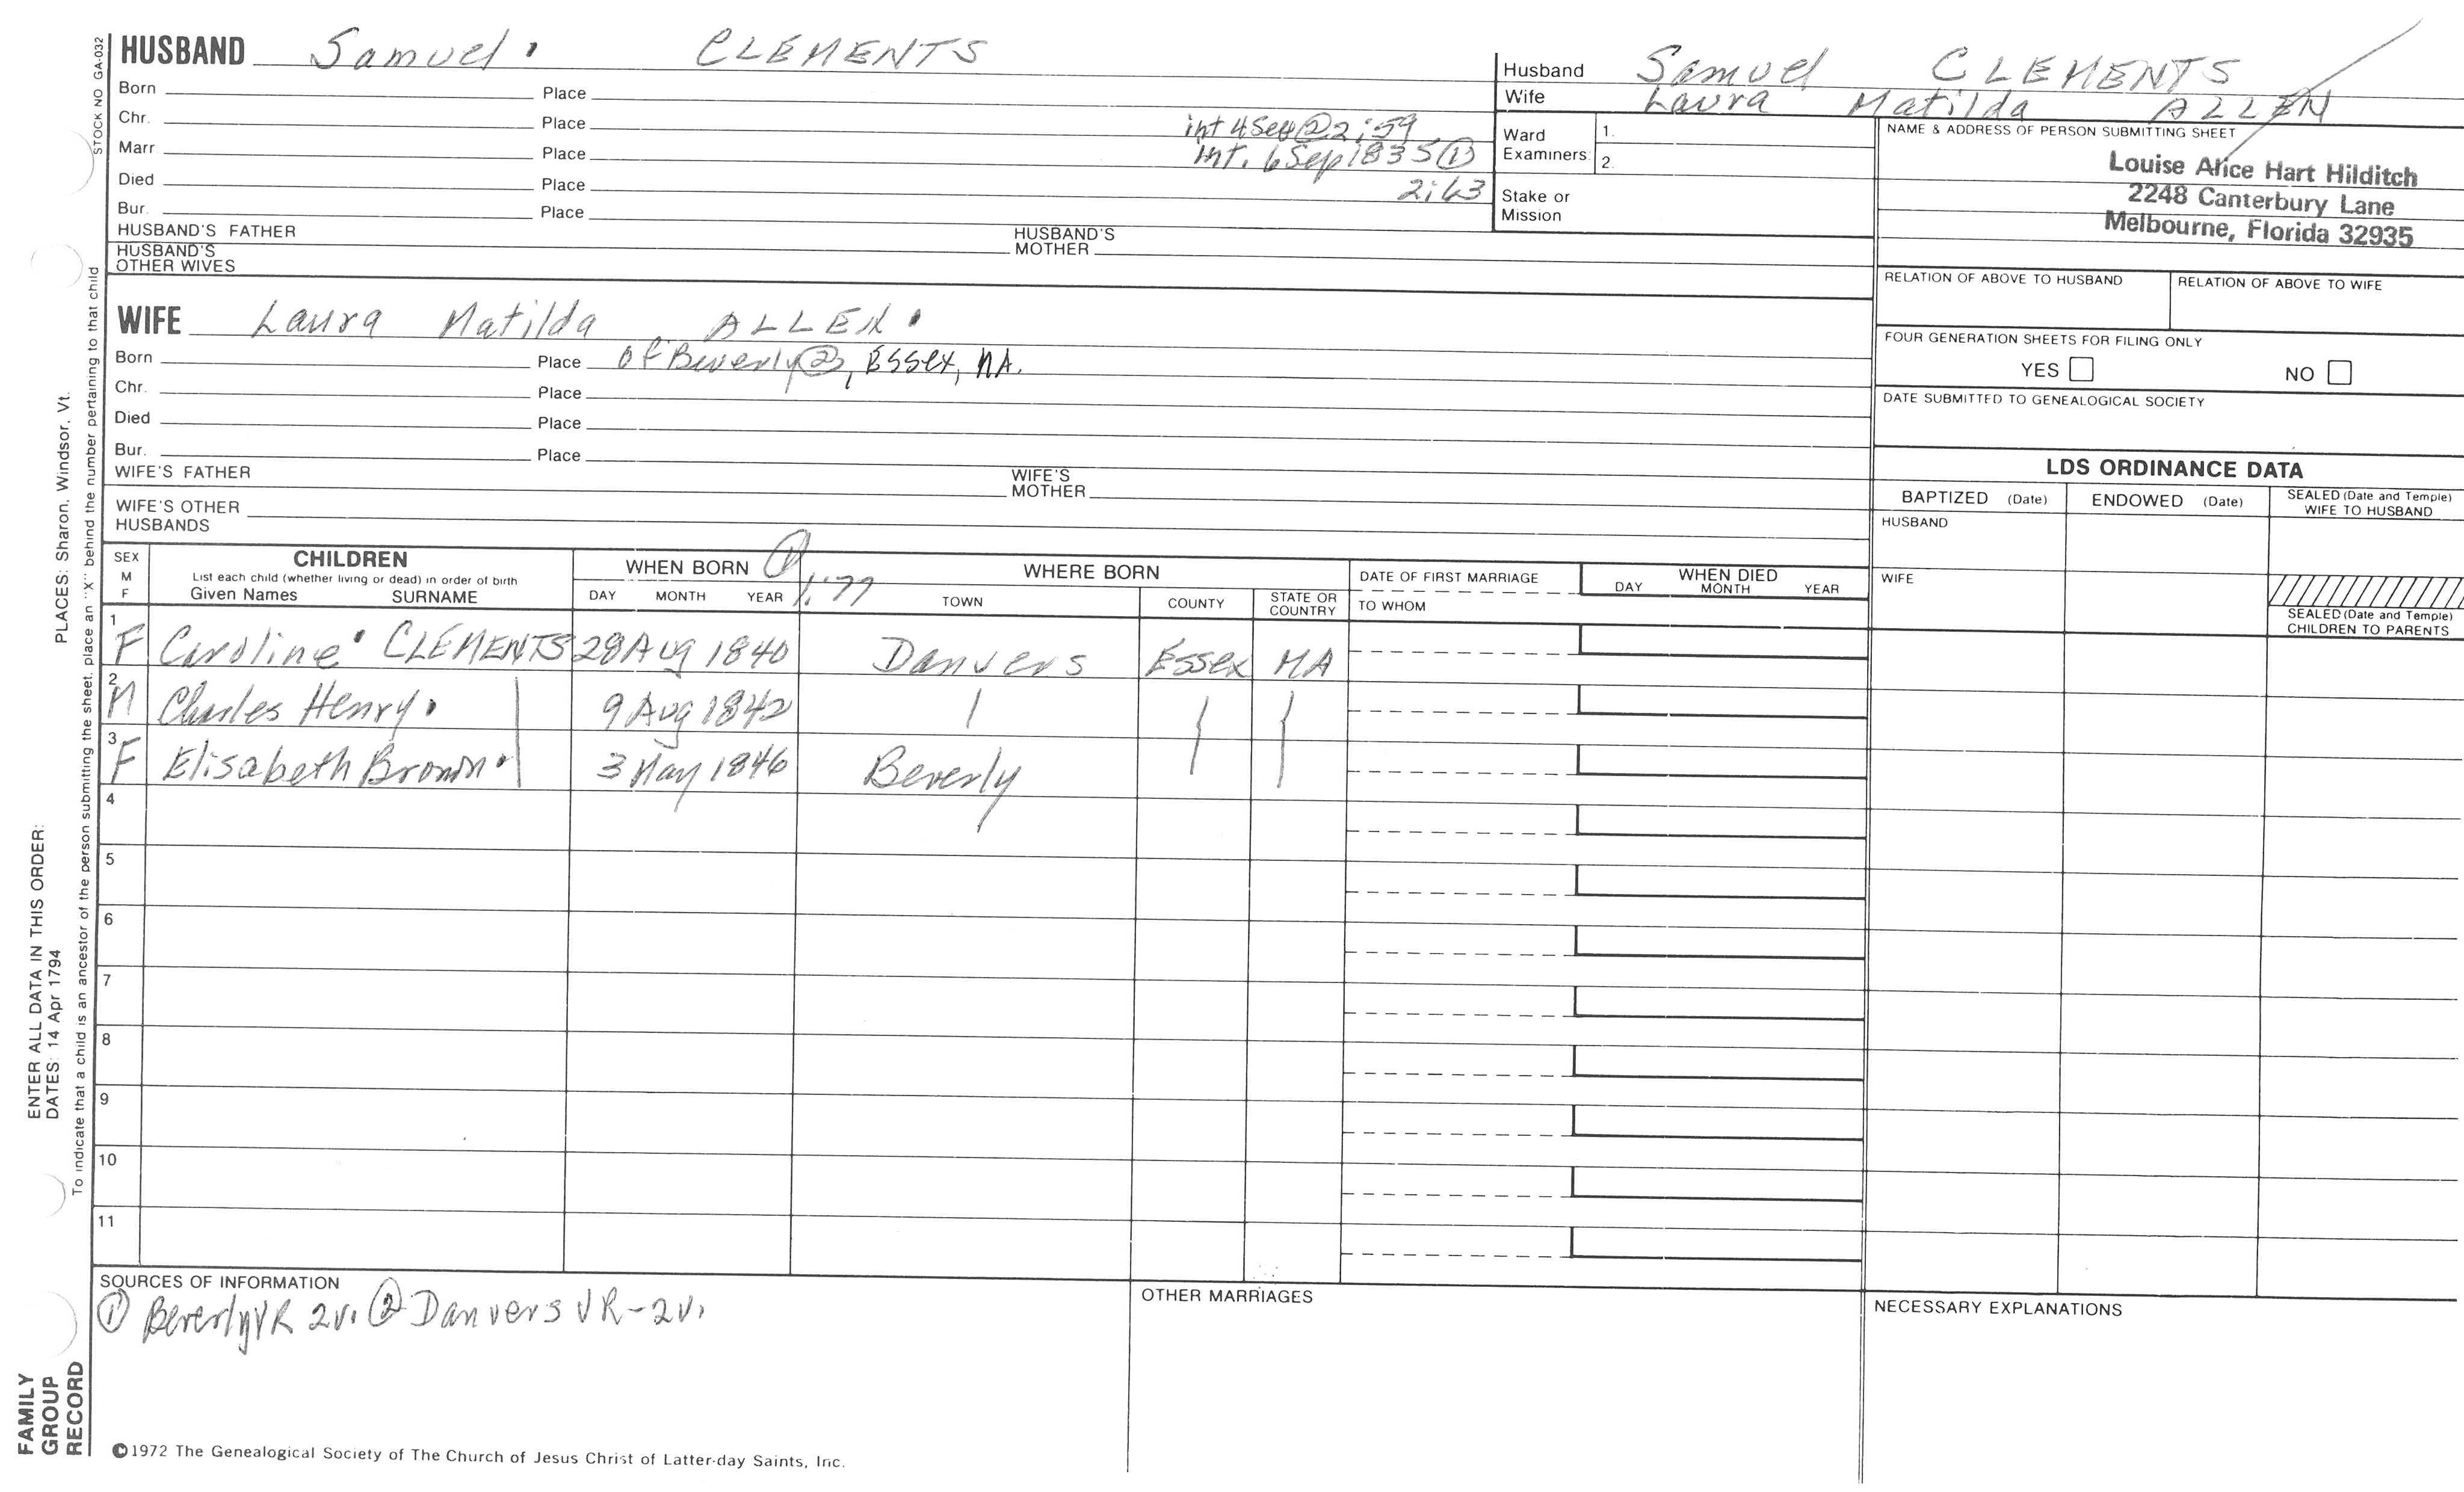 STOCK NO GA-032
HUSBAND Samuel. CLEMENTS
Born Place
Chr. Place int 4 Sep ② 2:59
Marr Place int. 6 Sep 1835 ①
Died Place 2:63
Bur. Place
HUSBAND'S FATHER HUSBAND'S MOTHER
HUSBAND'S OTHER WIVES
WIFE Laura Matilda ALLEN.
Born Place of Beverly ②, Essex, MA.
Chr. Place
Died Place
Bur. Place
WIFE'S FATHER WIFE'S MOTHER
WIFE'S OTHER HUSBANDS
Husband Samuel CLEMENTS
Wife Laura Matilda ALLEN
Ward Examiners: 1.
2.
Stake or Mission
NAME & ADDRESS OF PERSON SUBMITTING SHEET
Louise Alice Hart Hilditch
2248 Canterbury Lane
Melbourne, Florida 32935
RELATION OF ABOVE TO HUSBAND RELATION OF ABOVE TO WIFE
FOUR GENERATION SHEETS FOR FILING ONLY
YES NO
DATE SUBMITTED TO GENEALOGICAL SOCIETY
LDS ORDINANCE DATA
BAPTIZED (Date) ENDOWED (Date) SEALED (Date and Temple) WIFE TO HUSBAND
HUSBAND
WIFE
SEALED (Date and Temple) CHILDREN TO PARENTS
SEX M F
CHILDREN
List each child (whether living or dead) in order of birth
Given Names SURNAME
WHEN BORN ① 1:77
DAY MONTH YEAR
WHERE BORN
TOWN COUNTY STATE OR COUNTRY
DATE OF FIRST MARRIAGE
TO WHOM
WHEN DIED
DAY MONTH YEAR
1 F Caroline. CLEMENTS 28 Aug 1840 Danvers Essex MA
2 M Charles Henry. 9 Aug 1842
3 F Elisabeth Brown. 3 May 1846 Beverly
4
5
6
7
8
9
10
11
SOURCES OF INFORMATION
① Beverly VR 2v. ② Danvers VR-2v.
OTHER MARRIAGES
NECESSARY EXPLANATIONS
©1972 The Genealogical Society of The Church of Jesus Christ of Latter-day Saints, Inc.
FAMILY
GROUP
RECORD
ENTER ALL DATA IN THIS ORDER:
DATES: 14 Apr 1794
PLACES: Sharon, Windsor, Vt.
To indicate that a child is an ancestor of the person submitting the sheet, place an "X" behind the number pertaining to that child